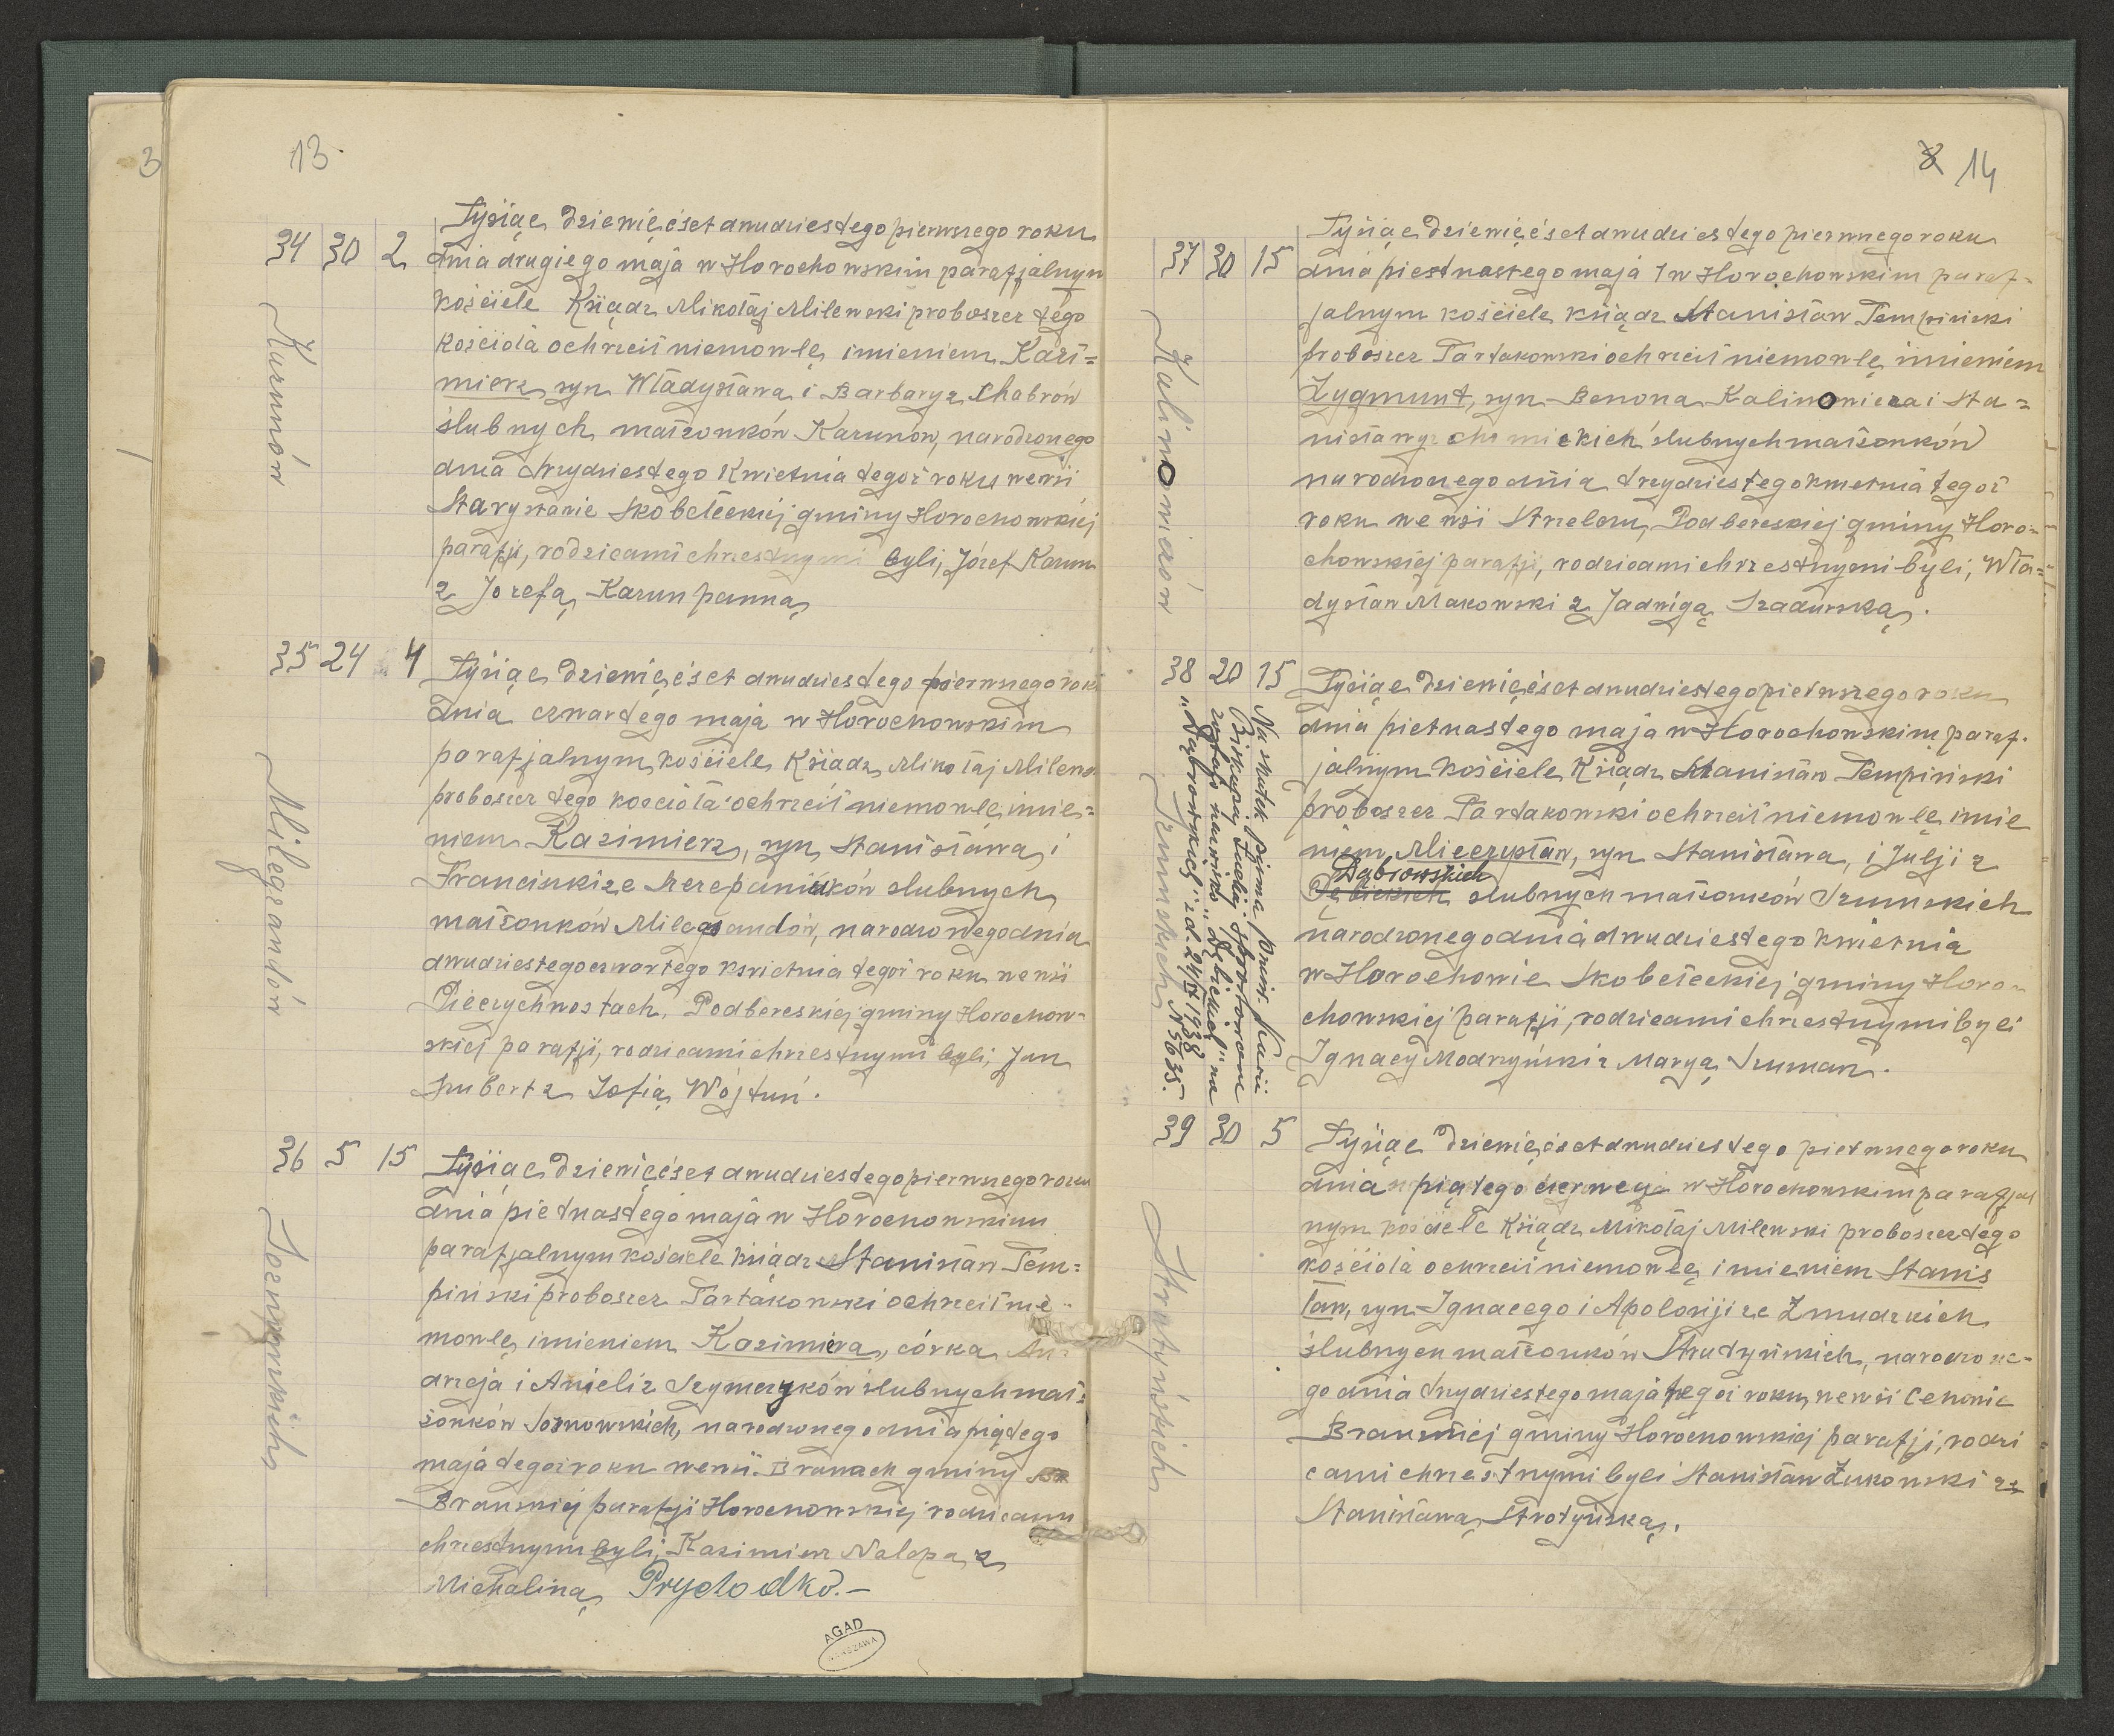 3
13
34 30 2
Karunów
Tysiąc dziewięćset dwudziestego pierwszego roku
dnia drugiego maja w Horochowskim parafjalnym
kościele Ksiądz Mikołaj Milewski proboszcz tego
kościoła ochrzcił niemowlę imieniem Kazi=
mierz syn Władysława i Barbary z Chabrów
ślubnych małżonków Karunów, narodzonego
dnia trzydziestego Kwietnia tegoż roku we wsi
Skobełeckiej gminy Horochowskiej
parafji, rodzicami chrzestnymi byli, Józef Karun
z Jozefą Karun panną
35 24 4
Milegrandów
Tysiąc dziewięćset dwudziestego pierwszego roku
dnia czwartego maja w Horochowskim
parafjalnym kościele Ksiądz Mikołaj Milews
proboszcz tego kościoła ochrzcił niemowlę imie=
niem Kazimierz, syn Stanisława i
Franciszki ze Szczepaniuków slubnych
małżonków narodzonego dnia
dwudziestego czwartego kwietnia tegoż roku we wsi
Pieczychwostach, Podbereskiej gminy Horochow-
skiej parafji, rodzicami chrzestnymi byli, Jan
Szubert z Zofią Wójtuń.
36 5 15
Tysiąc dziewięćset dwudziestego pierwszego roku
dnia pietnastego maja w Horochowskim
parafjalnym kościele ksiądz Stanisłan Tem=
pinski proboszcz Tartakowski ochrzcił nie-
mowlę imieniem Kazimiera, córka An-
drzeja i Anieli z Szymczyków slubnych mał=
żonków Sosnowskich, narodzonego dnia piątego
maja tegoż roku we wsi Branach gminy
Branskiej parafji Horochowskiej rodzicami
chrzestnymi byli, Kazimierz Nalepa z
Michaliną Prychodko.-
AGAD
WARSZAWA
8 14
37 30 15
Kalinowiczów
Tysiąc dziewięćset dwudziestego pierwszego roku
dnia piestnastego maja w Horochowskim paraf-
jalnym kościele ksiądz Stanisław Tempinski
proboszcz Tartakowski ochrzcił niemowlę imieniem
Zygmunt, syn Benona Kalinowicza i Sta=
nisławy slubnych małżonków
narodzonego dnia trzydziestego kwietnia tegoż
roku we wsi Strzelczu, Podbereskiej gminy Horo-
chowskiej parafji, rodzicami chrzestnymi byli, Wła=
dysław Makowski z Jadwigą Szadurską.
38 20 15
Szumskich
Na skutek pisma Kurii
Biskupiej Łuckiej sprostowane
zostało nazwisko "Dębickich" na
"Dąbrowskich" z d. 24/IV 1938 N 5635.
Tysiąc dziewięćset dwudziestego pierwszego roku
dnia pietnastego maja w Horochowskim paraf.
jalnym kościele Ksiądz Stanisław Tempinski
proboszcz Tartakowski ochrzcił niemowlę imie
niem Mieczysłan, syn Stanisława, i Julji z
Dąbrowskich
Dębickich slubnych małżonków Szumskich
narodzonego dnia dwudziestego kwietnia
w Horochowie Skobełeckiej gminy Horo-
chowskiej parafji, rodzicami chrzestnymi byli
Ignacy Modrzyński z Maryą Szuman.
39 30 5
Strotyńskich
Tysiąc dziewięćset dwudziestego pierwszego roku
dnia piątego czerwca w Horochowskim parafjal
nym kościele Ksiądz Mikołaj Milewski proboszcz tego
kościoła ochrzcił niemowlę imieniem Stanis
ław, syn Ignacego i Apolonji ze Zmudzkich
ślubnych małżonków narodzone-
go dnia trzydziestego maja tegoż roku, we wsi Cehowie
Branskiej gminy Horochowskiej parafji, rodzi
cami chrzestnymi byli Stanisław Żukowski ze
Stanisławą Strotyńską.